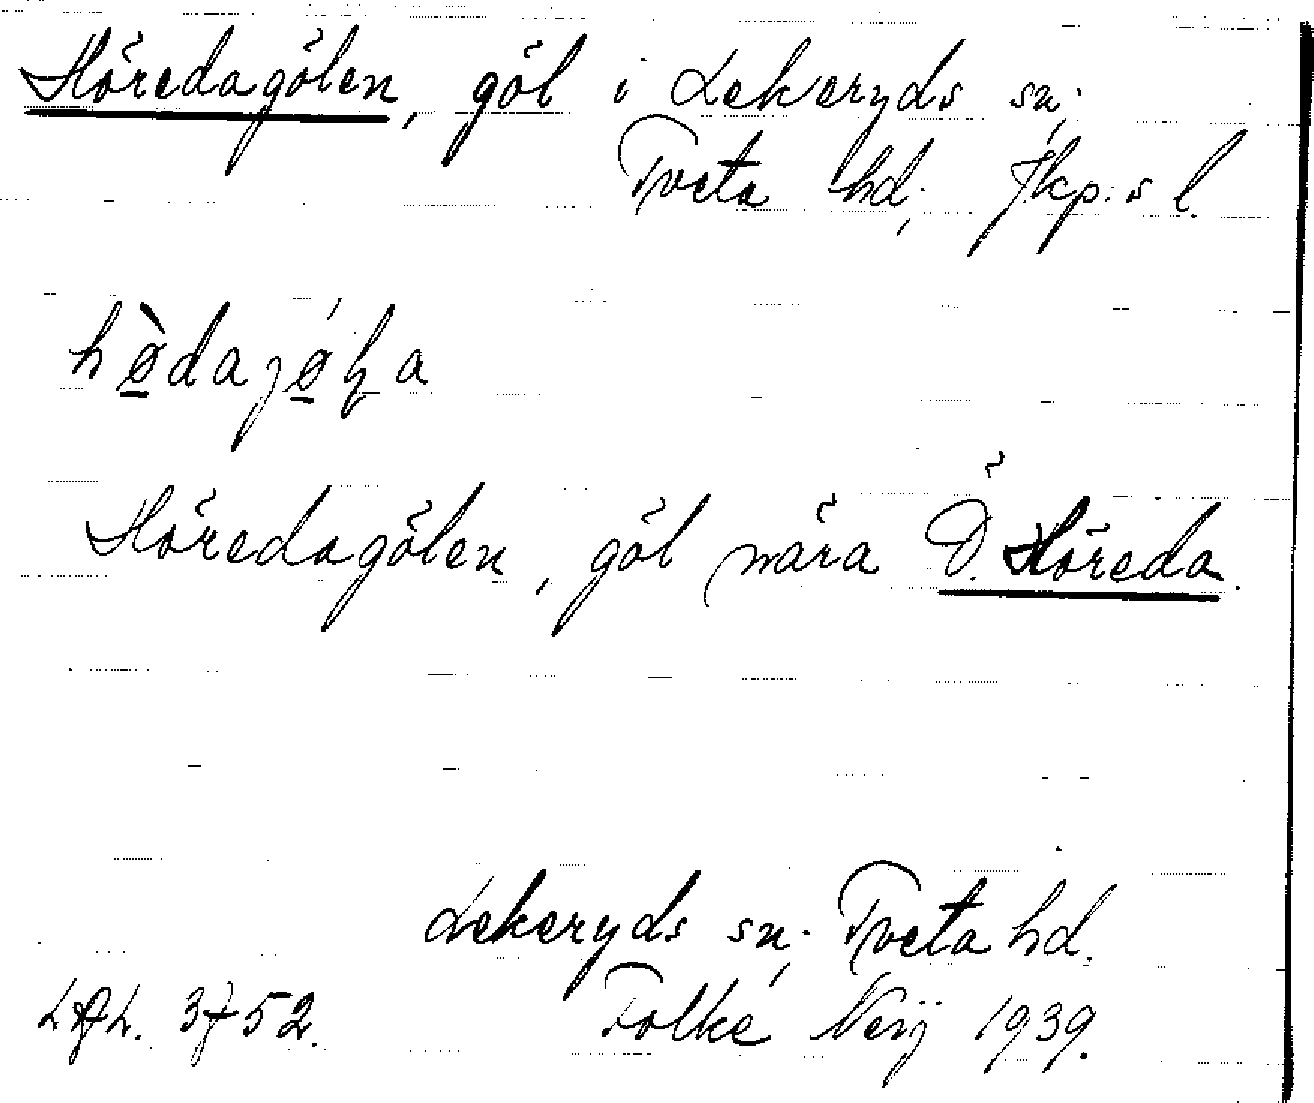 Höredagölen, göl i Lekeryds sn;
Tveta hd; Jkp:s l.
hø̠̀dajǿ̠ɫa
Höredagölen, göl nära Ö. Höreda.
Lekeryds sn; Tveta hd.
3752. Folke Neij 1939.